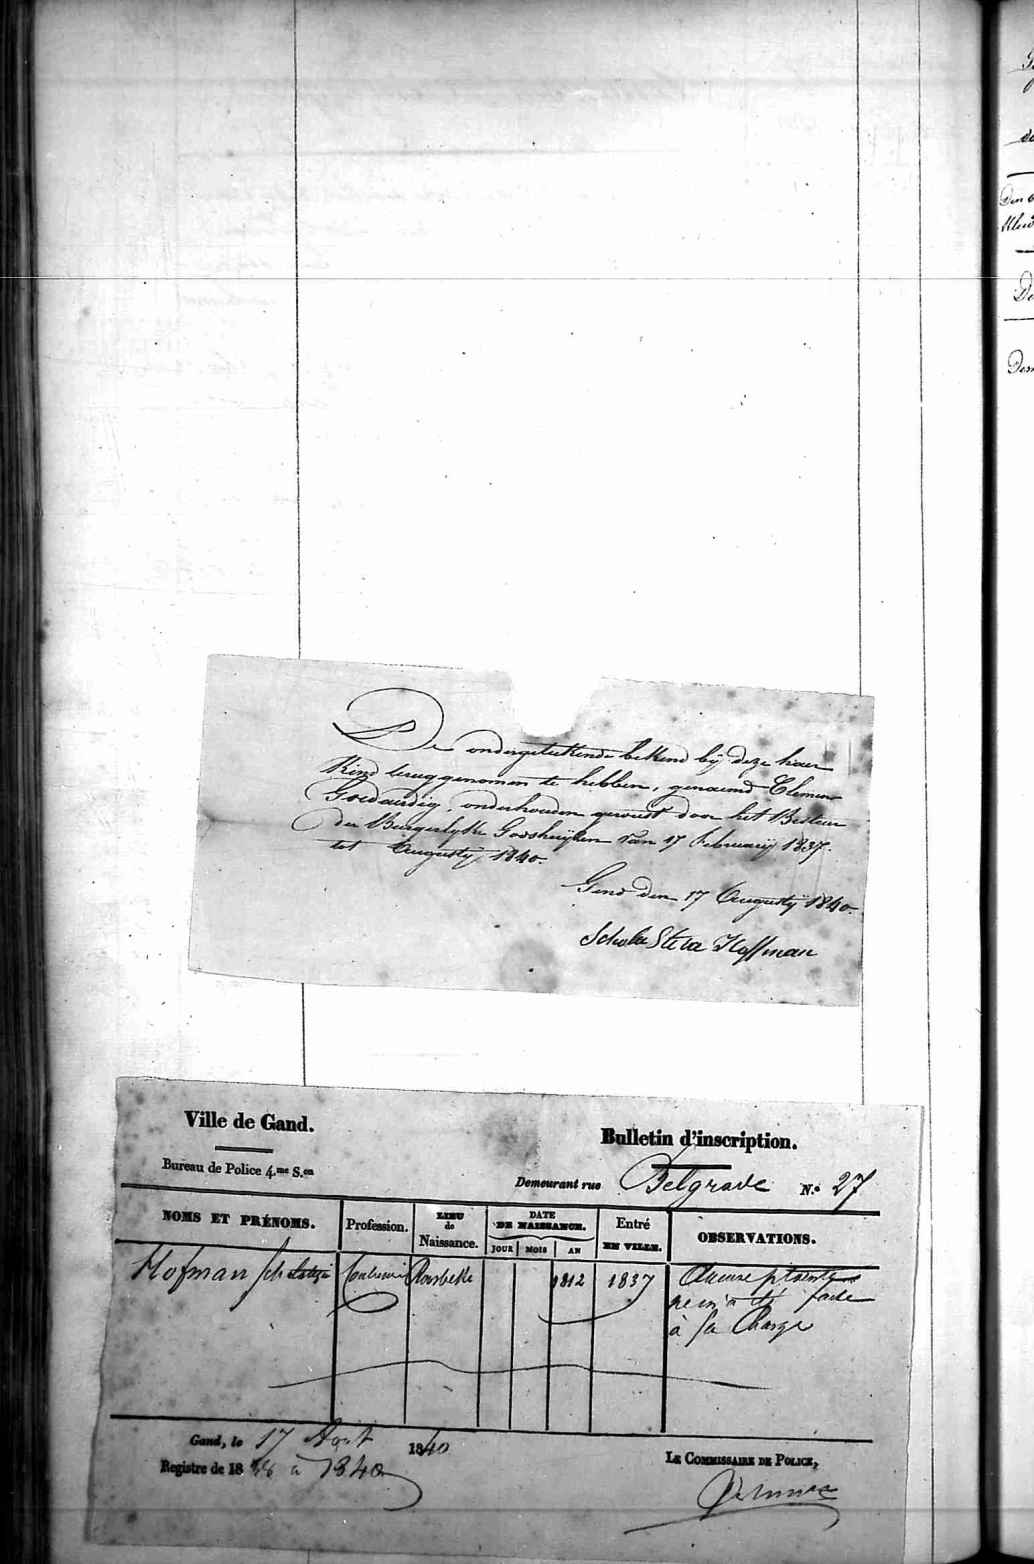 De ondergeteekende bekend bij deze haer
Kind teruggenomen te hebben, genaemd Clemen
Goedaerdig, onderhouden geweest door het Bestuer
der Burgerlyke Godshuyzen van 17 february 1837.
tot Augusty 1840.
Gend den 17 Augusty 1840.
Schola Stica Hoffman
Ville de Gand.
Bulletin d'inscription.
Bureau de Police 4.me S.on
Demeurant rue Belgrade N.o 27
NOMS ET PRÉNOMS.
Profession.
LIEU de Naissance.
DATE DE NAISSANCE.
JOUR MOIS AN
Entré EN VILLE.
OBSERVATIONS.
Hofman
1812
1837
Aucune plainte
ne m'a été faite
à sa Charge
Gand, le 17 Août 1840
Registre de 18 à 1840
LE COMMISSAIRE DE POLICE,